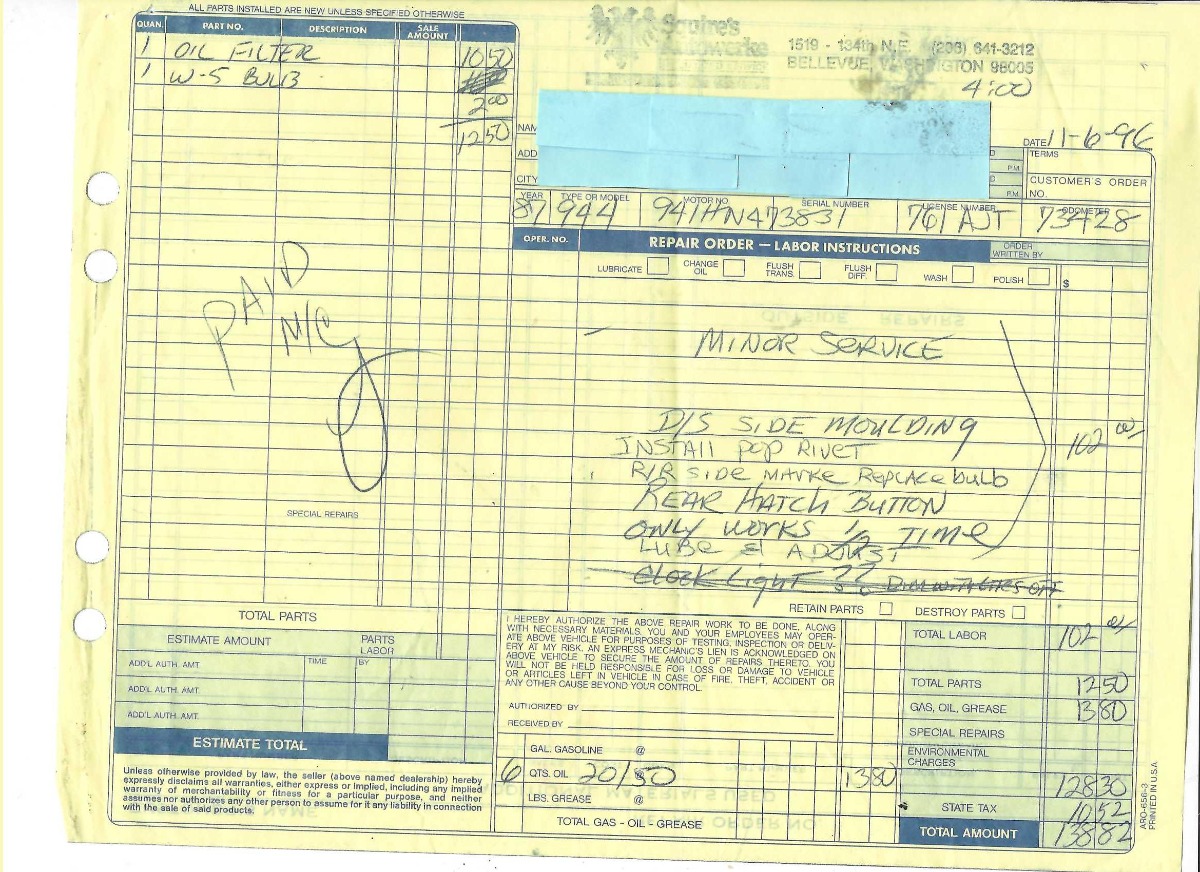 ALL PARTS INSTALLED ARE NEW UNLESS SPECIFIED OTHERWISE
QUAN. PART NO. DESCRIPTION SALE AMOUNT
1 OIL FILTER 1050
1 W-5 BULB
2 00
1250
1519 - 134th N.E. (206) 641-3212
BELLEVUE, WASHINGTON 98005
4:00
NAM
ADD
CITY
DATE 11-6-96
TERMS
P.M.
CUSTOMER'S ORDER NO.
P.M.
YEAR TYPE OR MODEL MOTOR NO. SERIAL NUMBER LICENSE NUMBER ODOMETER
87 944 941HN473831 761 AJT 73428
OPER. NO. REPAIR ORDER — LABOR INSTRUCTIONS ORDER WRITTEN BY
LUBRICATE CHANGE OIL FLUSH TRANS. FLUSH DIFF. WASH POLISH $
MINOR SERVICE
D/S SIDE MOULDING
INSTALL POP RIVET
R/R SIDE MARKE REPLACE bulb
REAR HATCH BUTTON
ONLY WORKS 1/2 TIME
LUBE & ADJUST
CLOCK LIGHT ??
102 00
PAID
M/C
SPECIAL REPAIRS
RETAIN PARTS DESTROY PARTS
TOTAL PARTS
ESTIMATE AMOUNT PARTS LABOR
ADD'L AUTH. AMT. TIME BY
ADD'L AUTH. AMT.
ADD'L AUTH. AMT.
ESTIMATE TOTAL
Unless otherwise provided by law, the seller (above named dealership) hereby
expressly disclaims all warranties, either express or implied, including any implied
warranty of merchantability or fitness for a particular purpose, and neither
assumes nor authorizes any other person to assume for it any liability in connection
with the sale of said products.
I HEREBY AUTHORIZE THE ABOVE REPAIR WORK TO BE DONE, ALONG
WITH NECESSARY MATERIALS. YOU AND YOUR EMPLOYEES MAY OPER-
ATE ABOVE VEHICLE FOR PURPOSES OF TESTING, INSPECTION OR DELIV-
ERY AT MY RISK. AN EXPRESS MECHANIC'S LIEN IS ACKNOWLEDGED ON
ABOVE VEHICLE TO SECURE THE AMOUNT OF REPAIRS THERETO. YOU
WILL NOT BE HELD RESPONSIBLE FOR LOSS OR DAMAGE TO VEHICLE
OR ARTICLES LEFT IN VEHICLE IN CASE OF FIRE, THEFT, ACCIDENT OR
ANY OTHER CAUSE BEYOND YOUR CONTROL.
AUTHORIZED BY
RECEIVED BY
GAL. GASOLINE @
6 QTS. OIL 20/50 @ 1380
LBS. GREASE @
TOTAL GAS - OIL - GREASE
TOTAL LABOR 102 00
TOTAL PARTS 1250
GAS, OIL, GREASE 1380
SPECIAL REPAIRS
ENVIRONMENTAL CHARGES
12830
STATE TAX 1052
TOTAL AMOUNT 13882
ARO-656-3
PRINTED IN U.S.A